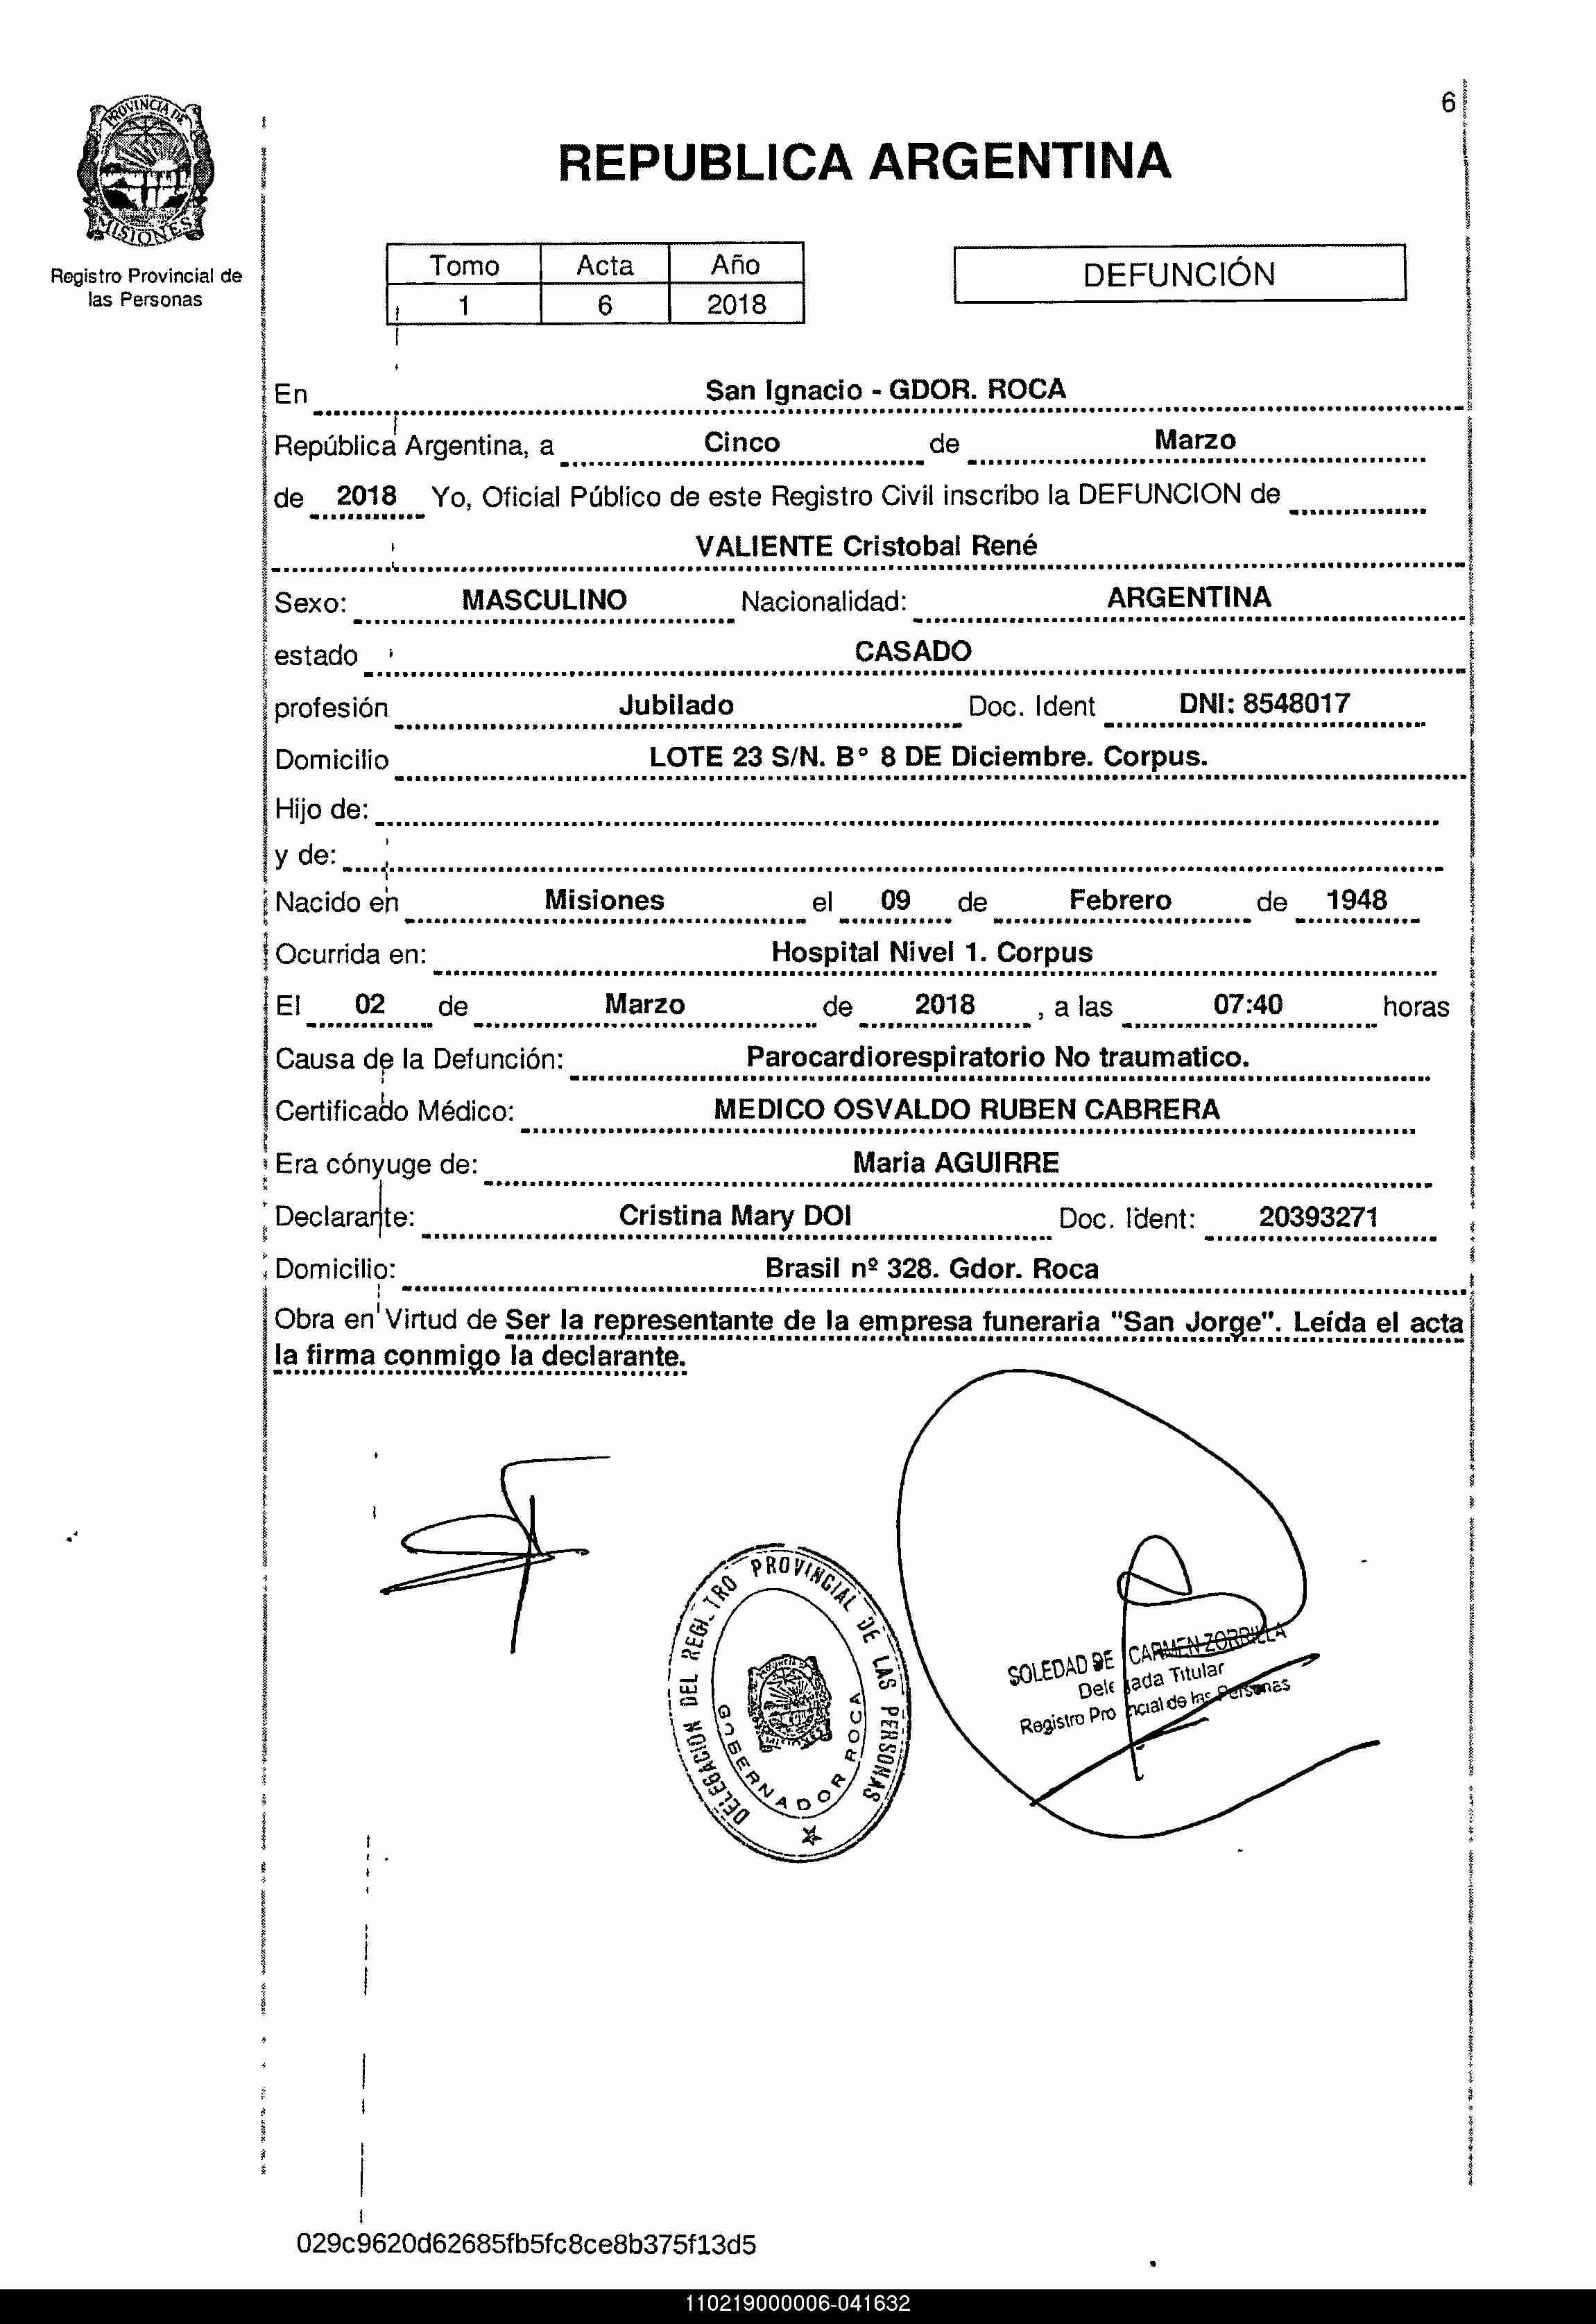 6
PROVINCIA DE
MISIONES
Registro Provincial de
las Personas
REPUBLICA ARGENTINA
Tomo Acta Año
1 6 2018
DEFUNCIÓN
En San Ignacio - GDOR. ROCA
República Argentina, a Cinco de Marzo
de 2018 Yo, Oficial Público de este Registro Civil inscribo la DEFUNCION de
VALIENTE Cristobal René
Sexo: MASCULINO Nacionalidad: ARGENTINA
estado CASADO
profesión Jubilado Doc. Ident DNI: 8548017
Domicilio LOTE 23 S/N. B° 8 DE Diciembre. Corpus.
Hijo de:
y de:
Nacido en Misiones el 09 de Febrero de 1948
Ocurrida en: Hospital Nivel 1. Corpus
El 02 de Marzo de 2018 , a las 07:40 horas
Causa de la Defunción: Parocardiorespiratorio No traumatico.
Certificado Médico: MEDICO OSVALDO RUBEN CABRERA
Era cónyuge de: Maria AGUIRRE
Declarante: Cristina Mary DOI Doc. Ident: 20393271
Domicilio: Brasil nº 328. Gdor. Roca
Obra en Virtud de Ser la representante de la empresa funeraria "San Jorge". Leída el acta
la firma conmigo la declarante.
DELEGACION DEL REGISTRO PROVINCIAL DE LAS PERSONAS
GOBERNADOR ROCA
SOLEDAD DE CARMEN ZORRILLA
Delegada Titular
Registro Provincial de las Personas
029c9620d62685fb5fc8ce8b375f13d5
110219000006-041632